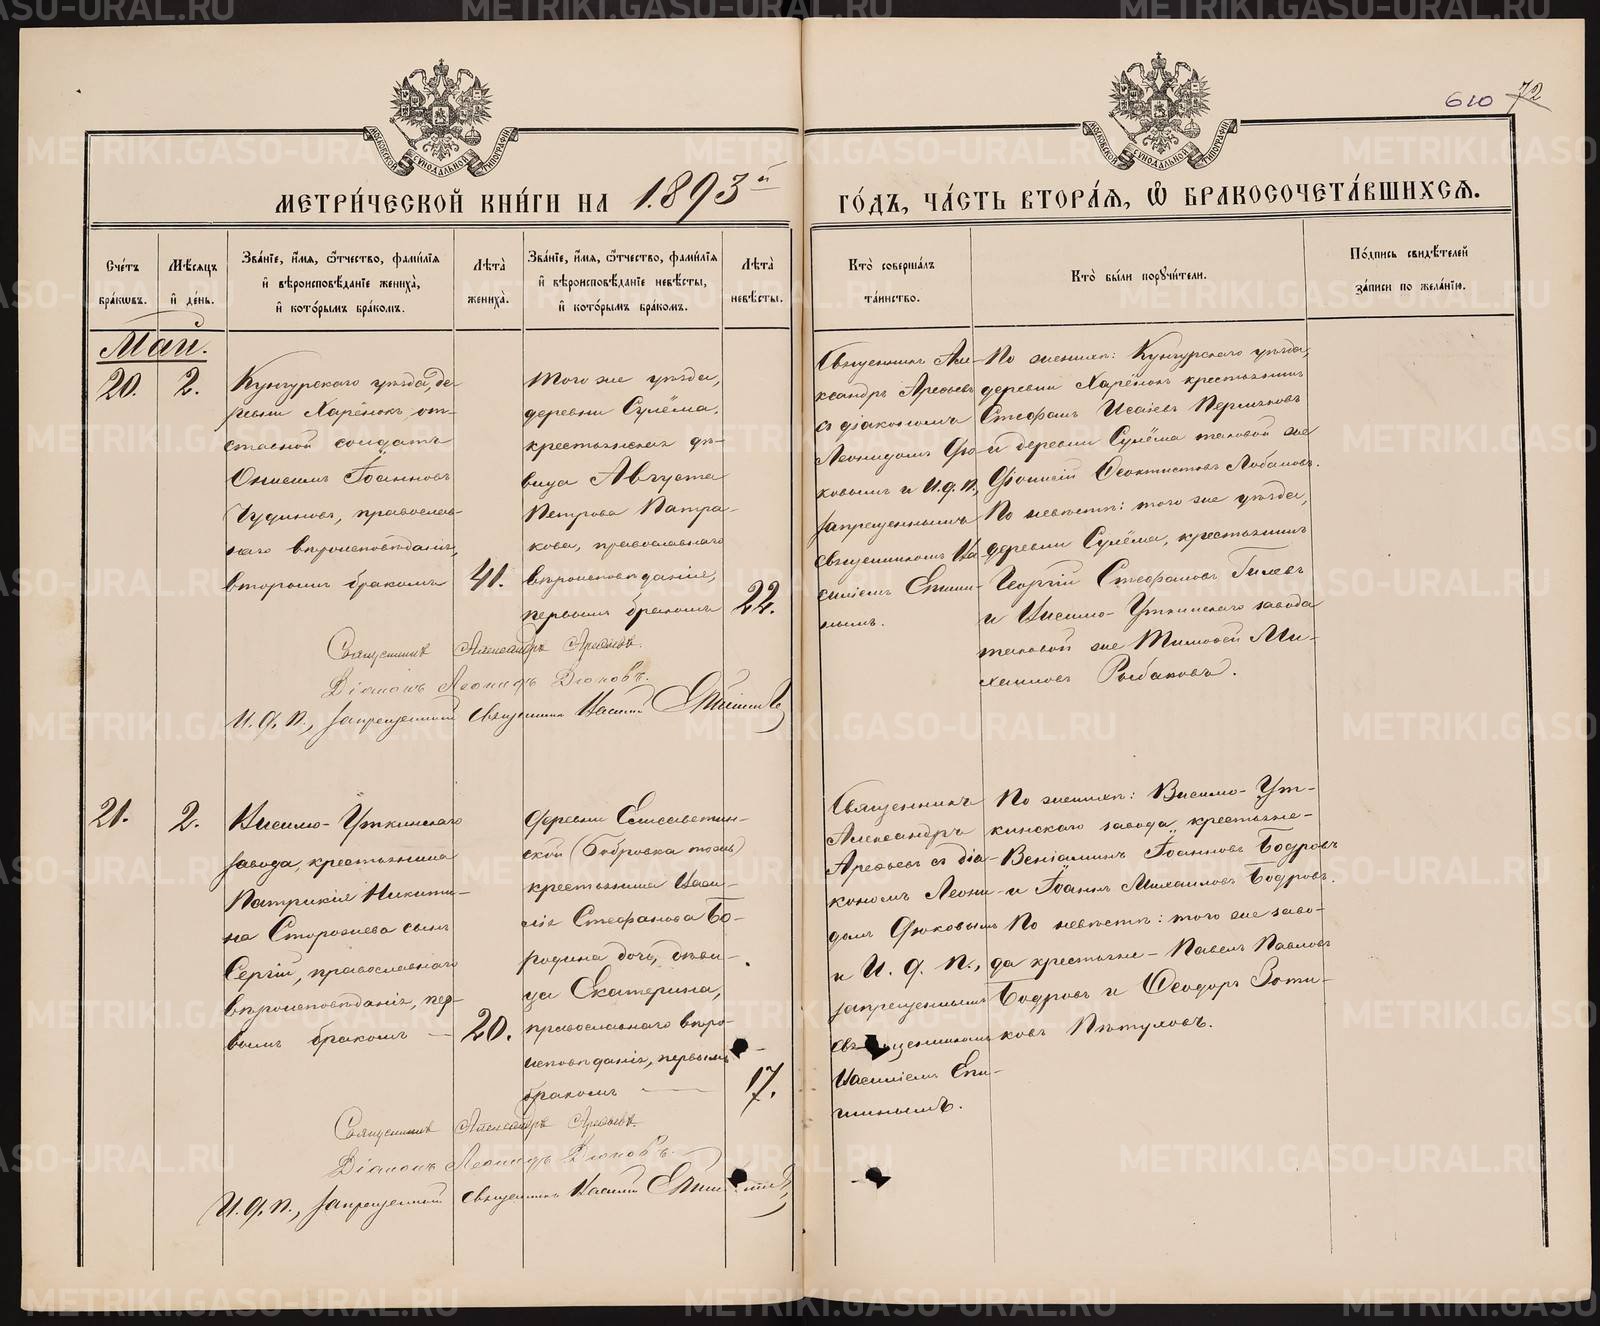 610 72
МЕТРИ́ЧЕСКОЙ КНИ́ГИ НА 1893й ГО́ДЪ, ЧА́СТЬ ВТОРА́Я, Ѡ҆ БРАКОСОЧЕТА́ВШИХСЯ.
МОСКОВСКОЙ СѴНОДАЛЬНОЙ ТИПОГРАФІИ
МОСКОВСКОЙ СѴНОДАЛЬНОЙ ТИПОГРАФІИ
Сче́тъ
бра́кѡвъ.
Мѣ́сяцъ
и҆ де́нь.
Зва́нїе, и҆́мя, ѻ҆́тчество, фами́лїя
и҆ вѣроисповѣ́данїе жениха̀,
и҆ кото́рымъ бра́комъ.
Лѣта̀
жениха̀.
Зва́нїе, и҆́мя, ѻ҆́тчество, фами́лїя
и҆ вѣроисповѣ́данїе невѣ́сты,
и҆ кото́рымъ бра́комъ.
Лѣта̀
невѣ́сты.
Кто̀ соверша́лъ
та́инство.
Кто̀ бы́ли порꙋчи́тели.
По́дпись свидѣ́телей
за́писи по жела́нїю.
Май.
20.
2.
Кунгурскаго уѣзда, де-
ревни Харёнокъ, от-
ставной солдатъ
Онисимъ Іоанновъ
Чудиновъ, православ-
наго вѣроисповѣданія,
вторымъ бракомъ
41.
Того же уѣзда,
деревни Сулёма,
крестьянская дѣ-
вица Августа
Петрова Патра-
кова, православнаго
вѣроисповѣданія,
первымъ бракомъ
22.
Священникъ Але-
ксандръ Арефьевъ
съ діакономъ
Леонидомъ Дю-
ковымъ и И. д. п.,
запрещеннымъ
священникомъ Ва-
силіемъ Епиши-
нымъ.
По женихѣ: Кунгурскаго уѣзда,
деревни Харёнокъ крестьянинъ
Стефанъ Исаіевъ Перминовъ
и деревни Сулёма таковой же
Діонисій Ѳеоктистовъ Лобановъ.
По невѣстѣ: того же уѣзда,
деревни Сулёма, крестьянинъ
Георгій Стефановъ Гилевъ
и Висимо-Уткинскаго завода
таковой же Тимофей Ми-
хаиловъ Рыбаковъ.
Священникъ Александръ Арефьевъ.
Діаконъ Леонидъ Дюковъ.
И. д. п., запрещенный священникъ Василій Епишинъ
21.
2.
Висимо-Уткинскаго
завода, крестьянина
Патрикія Никити-
на Сторожева сынъ
Сергій, православнаго
вѣроисповѣданія, пер-
вымъ бракомъ —
20.
Деревни Елисаветин-
ской (Бобровка тожъ)
крестьянина Васи-
лія Стефанова Бо-
родина дочь, дѣви-
ца Екатерина,
православнаго вѣро-
исповѣданія, первымъ
бракомъ —
17.
Священникъ
Александръ
Арефьевъ съ діа-
кономъ Леони-
домъ Дюковымъ
и И. д. п.,
запрещеннымъ
священникомъ
Василіемъ Епи-
шинымъ.
По женихѣ: Висимо-Ут-
кинскаго завода, крестьяне-
Веніаминъ Іоанновъ Бодровъ
и Іоаннъ Михаиловъ Бодровъ.
По невѣстѣ: того же заво-
да крестьяне - Павелъ Павловъ
Бодровъ и Ѳеодоръ Зоти-
ковъ Пѣтуховъ.
Священникъ Александръ Арефьевъ.
Діаконъ Леонидъ Дюковъ.
И. д. п., запрещенный священникъ Василій Епишинъ